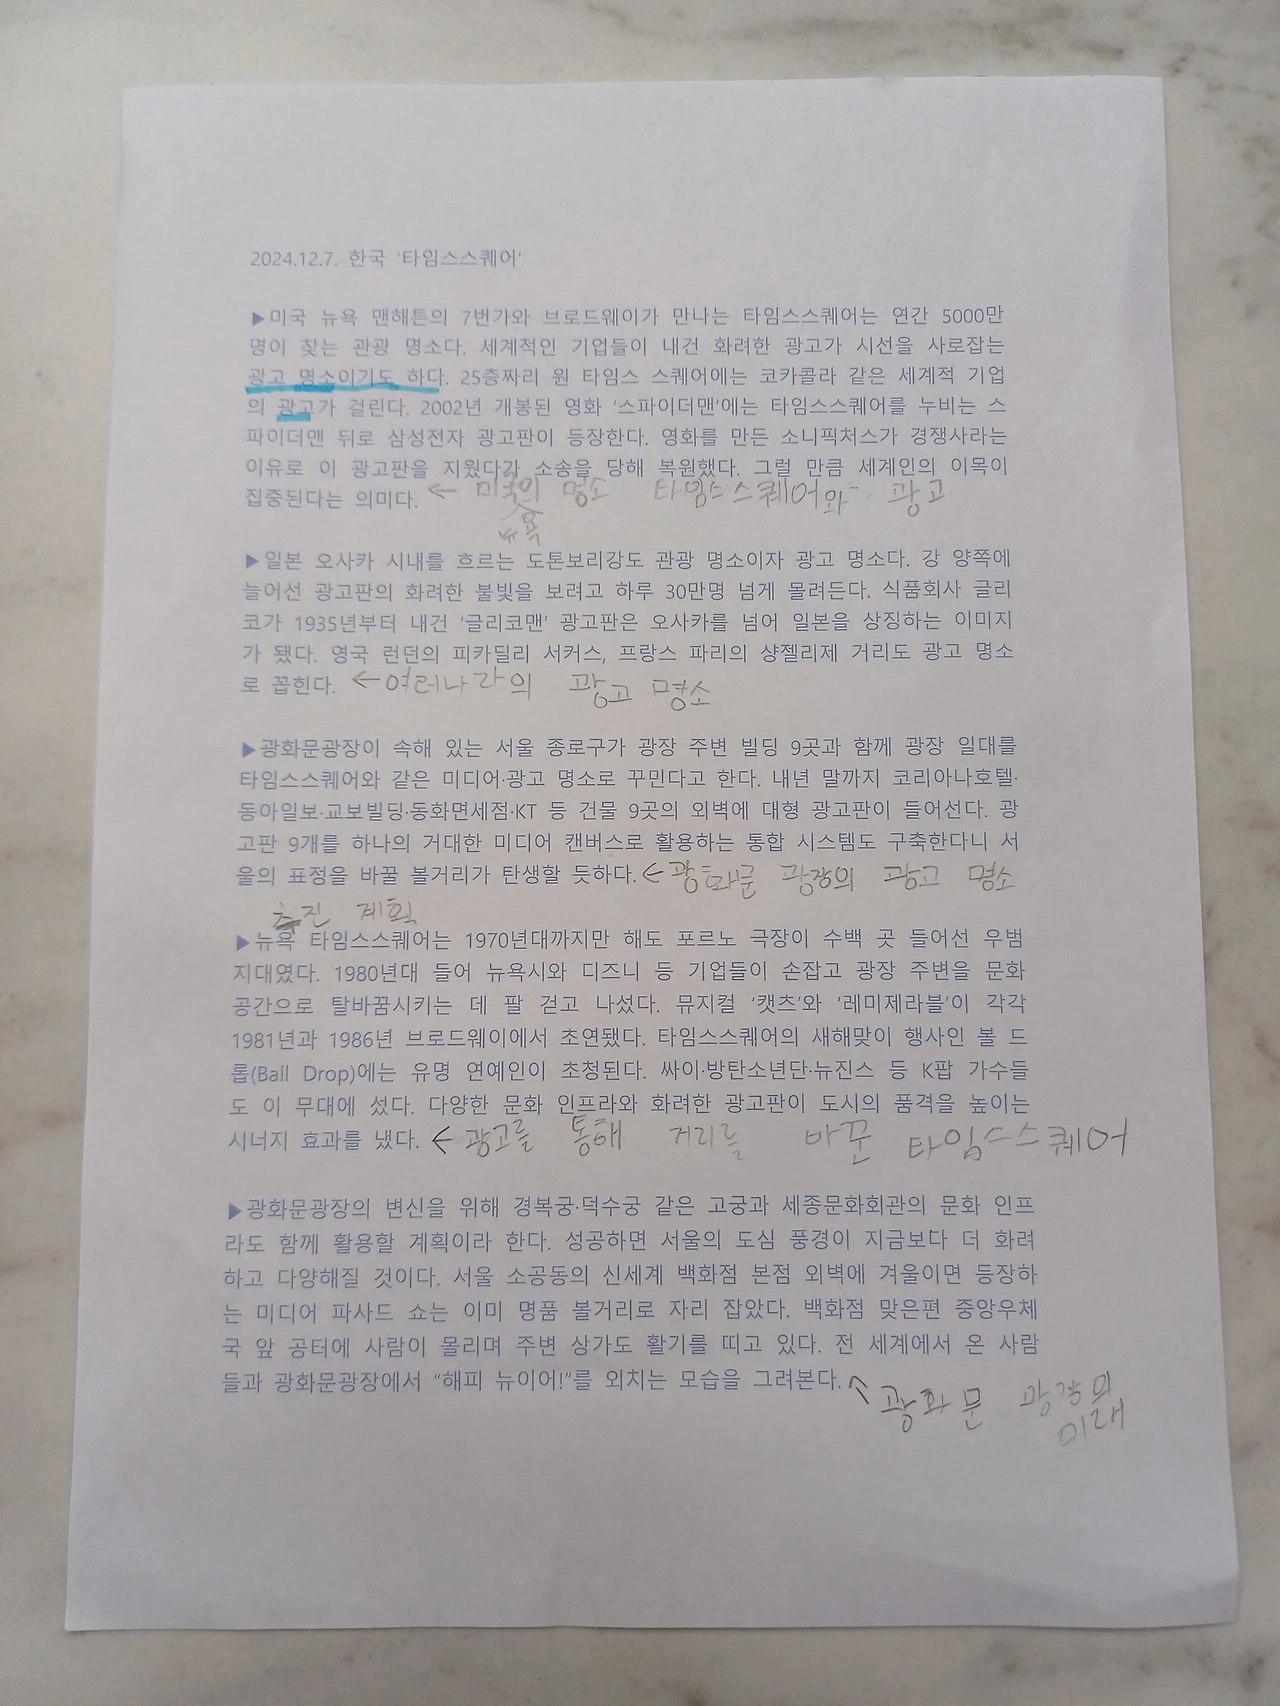 2024.12.7. 한국 '타임스스퀘어'
▶미국 뉴욕 맨해튼의 7번가와 브로드웨이가 만나는 타임스스퀘어는 연간 5000만
명이 찾는 관광 명소다. 세계적인 기업들이 내건 화려한 광고가 시선을 사로잡는
광고 명소이기도 하다. 25층짜리 원 타임스 스퀘어에는 코카콜라 같은 세계적 기업
의 광고가 걸린다. 2002년 개봉된 영화 '스파이더맨'에는 타임스스퀘어를 누비는 스
파이더맨 뒤로 삼성전자 광고판이 등장한다. 영화를 만든 소니픽처스가 경쟁사라는
이유로 이 광고판을 지웠다가 소송을 당해 복원했다. 그럴 만큼 세계인의 이목이
집중된다는 의미다. ← 미국의 명소 타임스스퀘어와 광고
뉴욕
▶일본 오사카 시내를 흐르는 도톤보리강도 관광 명소이자 광고 명소다. 강 양쪽에
늘어선 광고판의 화려한 불빛을 보려고 하루 30만명 넘게 몰려든다. 식품회사 글리
코가 1935년부터 내건 '글리코맨' 광고판은 오사카를 넘어 일본을 상징하는 이미지
가 됐다. 영국 런던의 피카딜리 서커스, 프랑스 파리의 샹젤리제 거리도 광고 명소
로 꼽힌다. ←여러나라의 광고 명소
▶광화문광장이 속해 있는 서울 종로구가 광장 주변 빌딩 9곳과 함께 광장 일대를
타임스스퀘어와 같은 미디어·광고 명소로 꾸민다고 한다. 내년 말까지 코리아나호텔·
동아일보·교보빌딩·동화면세점·KT 등 건물 9곳의 외벽에 대형 광고판이 들어선다. 광
고판 9개를 하나의 거대한 미디어 캔버스로 활용하는 통합 시스템도 구축한다니 서
울의 표정을 바꿀 볼거리가 탄생할 듯하다.←광화문 광장의 광고 명소
추진 계획
▶뉴욕 타임스스퀘어는 1970년대까지만 해도 포르노 극장이 수백 곳 들어선 우범
지대였다. 1980년대 들어 뉴욕시와 디즈니 등 기업들이 손잡고 광장 주변을 문화
공간으로 탈바꿈시키는 데 팔 걷고 나섰다. 뮤지컬 '캣츠'와 '레미제라블'이 각각
1981년과 1986년 브로드웨이에서 초연됐다. 타임스스퀘어의 새해맞이 행사인 볼 드
롭(Ball Drop)에는 유명 연예인이 초청된다. 싸이·방탄소년단·뉴진스 등 K팝 가수들
도 이 무대에 섰다. 다양한 문화 인프라와 화려한 광고판이 도시의 품격을 높이는
시너지 효과를 냈다. ← 광고를 통해 거리를 바꾼 타임스스퀘어
▶광화문광장의 변신을 위해 경복궁·덕수궁 같은 고궁과 세종문화회관의 문화 인프
라도 함께 활용할 계획이라 한다. 성공하면 서울의 도심 풍경이 지금보다 더 화려
하고 다양해질 것이다. 서울 소공동의 신세계 백화점 본점 외벽에 겨울이면 등장하
는 미디어 파사드 쇼는 이미 명품 볼거리로 자리 잡았다. 백화점 맞은편 중앙우체
국 앞 공터에 사람이 몰리며 주변 상가도 활기를 띠고 있다. 전 세계에서 온 사람
들과 광화문광장에서 "해피 뉴이어!"를 외치는 모습을 그려본다.
← 광화문 광장의
미래